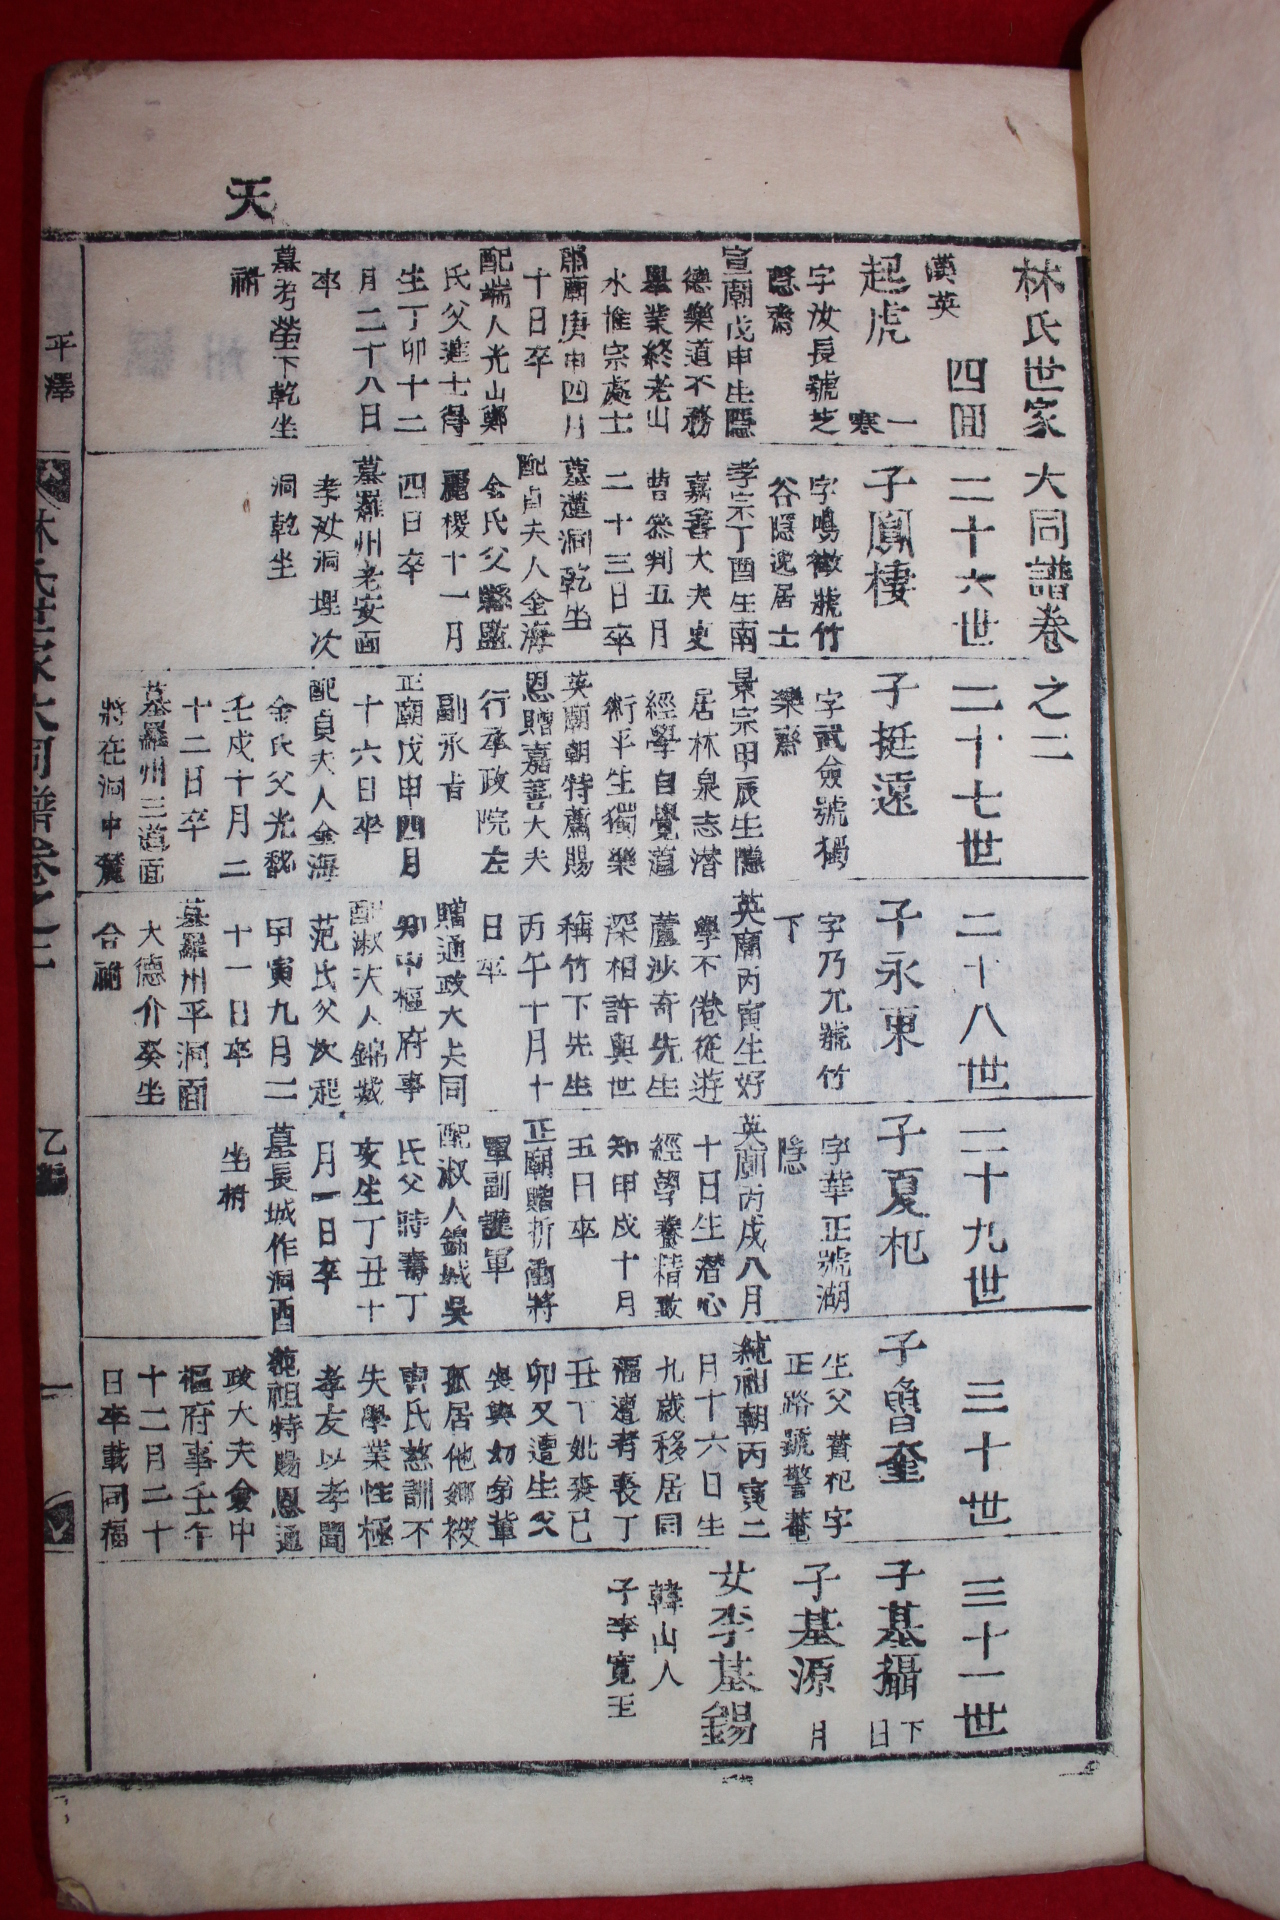 天
林氏世家大同譜卷之二
漢英
四囬
起虎
一寒
字汝長號芝
隱齋
宣廟戊申生隱
德樂道不務
擧業終老山
水惟宗處士
肅廟庚申四月
十日卒
配端人光山鄭
氏父進士得
生丁卯十二
月二十八日
卒
墓考塋下乾坐
祔
二十六世
子鳳棲
字鳴徵號竹
谷隱逸居士
孝宗丁酉生南
嘉善大夫吏
曹叅判五月
二十三日卒
墓蓮洞乾坐
配貞夫人金海
金氏父縣監
麗稷十一月
四日卒
墓羅州老安面
孝汝洞埋次
洞乾坐
二十七世
子挺遠
字武僉號獨
樂齋
景宗甲辰生隱
居林泉志潜
經學自覺道
術平生獨樂
英廟朝特薦賜
恩贈嘉善大夫
行承政院左
副承旨
正廟戊申四月
十六日卒
配貞夫人金海
金氏父光
壬戌十月二
十二日卒
墓羅州三道面
將在洞中麓
二十八世
子永東
字乃允號竹
下
英廟丙寅生好
學不倦從遊
蘆沙奇先生
深相許與世
稱竹下先生
丙午十月十
日卒
贈通政大夫同
知中樞府事
配淑夫人錦城
范氏父次起
甲寅九月二
十一日卒
墓羅州平洞面
大德介癸坐
合祔
二十九世
子夏杞
字華正號湖
隱
英廟丙戌八月
十日生潜心
經學養精致
知甲戌十月
五日卒
正廟贈折衝將
軍副護軍
配淑人錦城吳
氏父時壽丁
亥生丁丑十
月一日卒
墓長城作洞酉
坐祔
三十世
子魯奎
生父贊杞字
正路號警菴
純祖朝丙寅二
月十六日生
九歲移居同
福遭考喪丁
丑丁妣喪己
卯又遭生父
喪與幼弟輩
孤居他鄕被
曺氏慈訓不
失學業性極
孝友以孝聞
純祖特賜恩通
政大夫僉中
樞府事壬午
十二月二十
日卒載同福
三十一世
子基攝
下日
子基源
月
女李基錫
韓山人
子李寬王
平澤
林氏世家大同譜卷之二
乙編
一